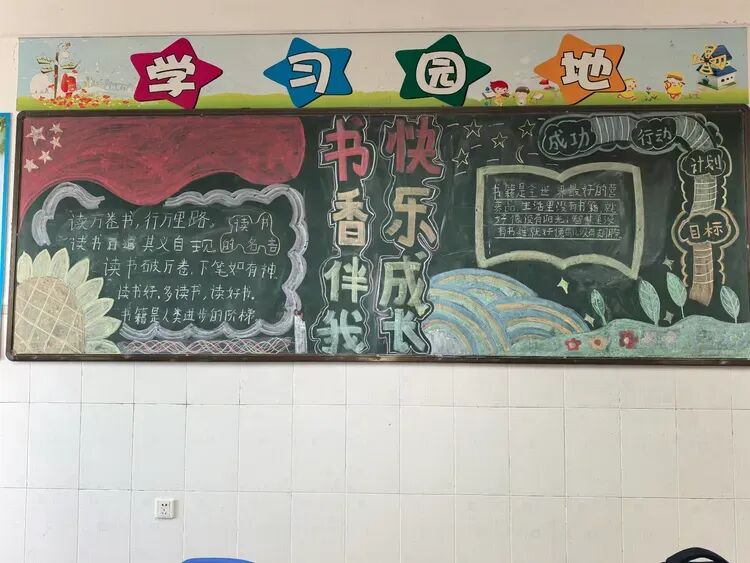 学习园地
读万卷书,行万里路。
读书百遍 其义自现
读书破万卷,下笔如有神
读书好,多读书,读好书。
书籍是人类进步的阶梯
读书
的名言
快乐成长
书香伴我
书籍是全世界最好的营
养品 生活里没有书籍 就
好像没有阳光,智慧里没
有书籍就好像鸟儿没有翅膀
成功
行动
计划
目标